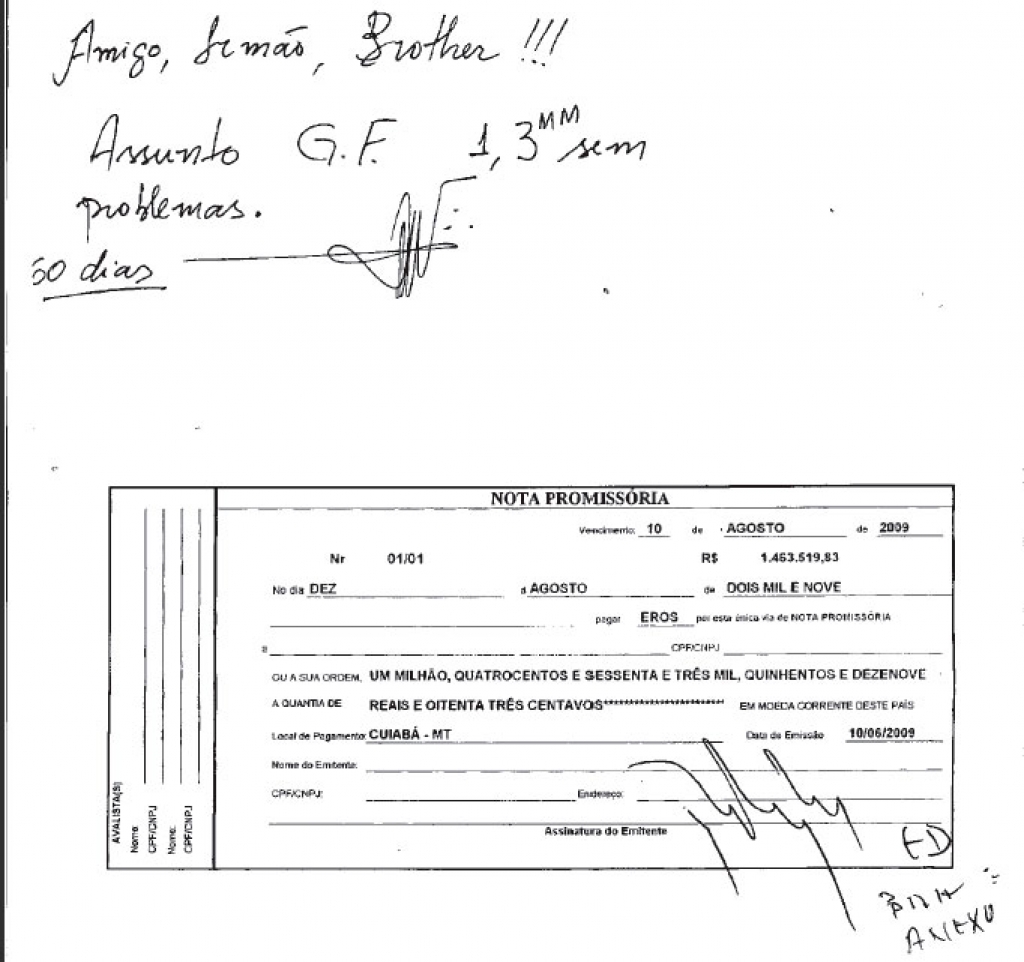 Amigo, Irmão, Brother !!!
Assunto G.F. 1,3 MM sem
problemas.
60 dias
NOTA PROMISSÓRIA
Vencimento: 10 de AGOSTO de 2009
Nr 01/01 R$ 1.463.519,83
No dia DEZ d AGOSTO de DOIS MIL E NOVE
pagar EROS por esta única via de NOTA PROMISSÓRIA
a CPF/CNPJ
OU A SUA ORDEM, UM MILHÃO, QUATROCENTOS E SESSENTA E TRÊS MIL, QUINHENTOS E DEZENOVE
A QUANTIA DE REAIS E OITENTA TRÊS CENTAVOS************************ EM MOEDA CORRENTE DESTE PAÍS
Local de Pagamento: CUIABÁ - MT Data de Emissão 10/06/2009
Nome do Emitente:
CPF/CNPJ: Endereço:
Assinatura do Emitente
AVALISTA(S)
Nome:
CPF/CNPJ
Nome:
CPF/CNPJ
ED
ANEXO